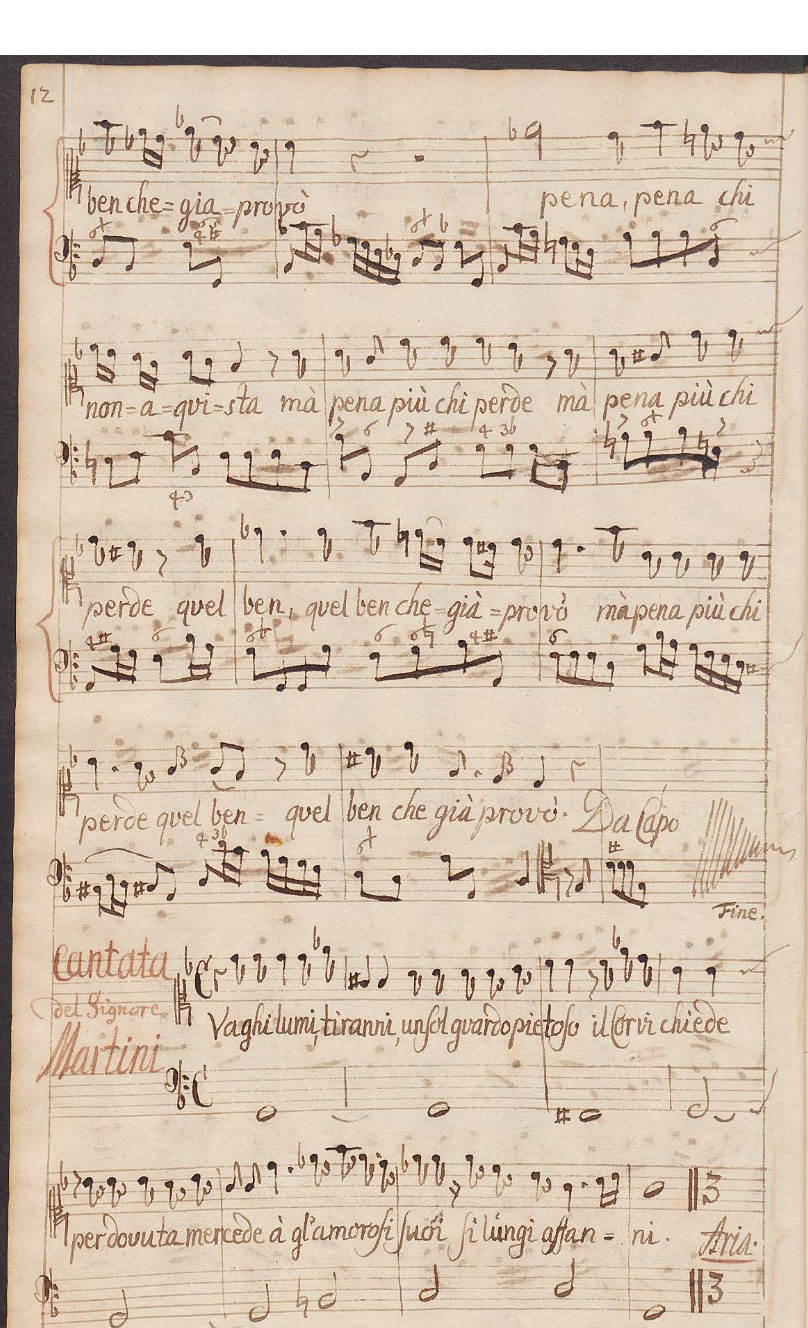 12
ben che = gia = provò pena, pena chi
non = a = qui = sta mà pena più chi perde mà pena più chi
perde quel ben, quel ben che = già = provò mà pena più chi
perde quel ben = quel ben che già provò. Da Capo
Fine.
Cantata
del Signore
Martini
Vaghi lumi, tiranni, un sol guardo pietoso il Cor vi chiede
per dovuta mercede à gl'amorosi suoi sì lungi affan = ni. Aria.